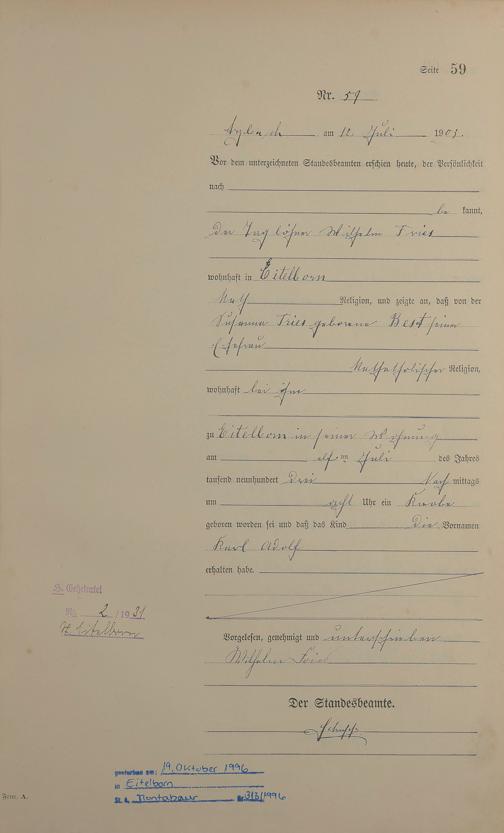 Seite 59
Nr. 59
am 12 Juli 1903.
Vor dem unterzeichneten Standesbeamten erschien heute, der Persönlichkeit
nach
be kannt,
der Taglöhner Wilhelm Fries
wohnhaft in Eitelborn
Kath Religion, und zeigte an, daß von der
Susanna Fries geborene Best seiner
Ehefrau
Katholischer Religion,
wohnhaft bei ihm
zu Eitelborn in seiner Wohnung
am elften Juli des Jahres
tausend neunhundert drei Nach mittags
um acht Uhr ein Knabe
geboren worden sei und daß das Kind die Vornamen
Karl Adolf
erhalten habe.
Vorgelesen, genehmigt und unterschrieben
Wilhelm Fries
Der Standesbeamte.
S. Geheiratet
Nr. 2/1931
St. Eitelborn
gestorben am: 19. Oktober 1996
in Eitelborn
St. A. Montabaur Nr. 313/1996
Form. A.